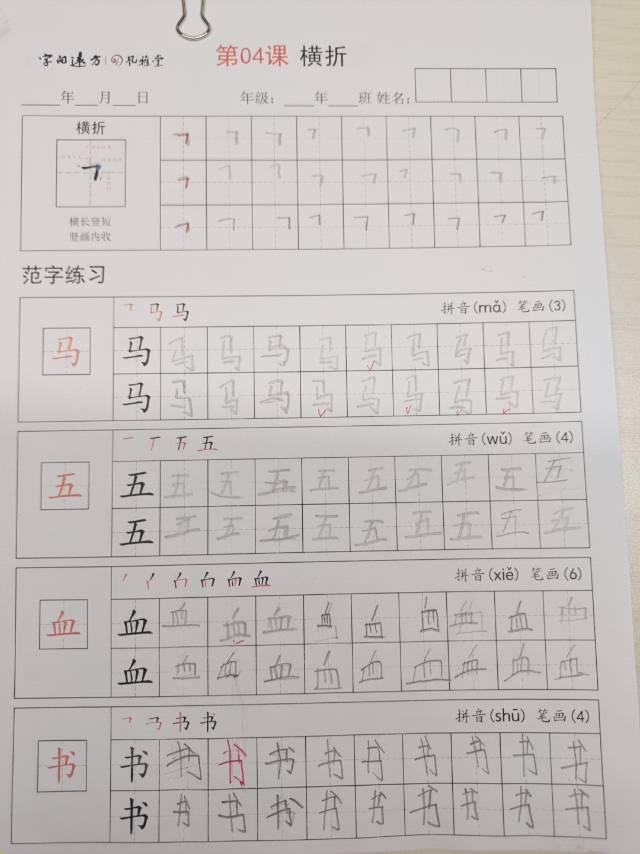 字向远方 孔雅堂 第04课 横折
年 月 日 年级: 年 班 姓名:
横折 ㇕ ㇕ ㇕ ㇕ ㇕ ㇕ ㇕ ㇕ ㇕
㇕ ㇕ ㇕ ㇕ ㇕ ㇕ ㇕ ㇕ ㇕ ㇕
横长竖短
竖画内收 ㇕ ㇕ ㇕ ㇕ ㇕ ㇕ ㇕ ㇕ ㇕
范字练习
马 拼音(mǎ) 笔画(3)
马 马 马 马 马 马 马 马 马 马 马
马 马 马 马 马 马 马 马 马 马
五 拼音(wǔ) 笔画(4)
五 五 五 五 五 五 五 五 五 五 五
五 五 五 五 五 五 五 五 五 五
血 拼音(xiě) 笔画(6)
血 血 血 血 血 血 血 血 血 血 血
血 血 血 血 血 血 血 血 血 血
书 拼音(shū) 笔画(4)
书 书 书 书 书 书 书 书 书 书 书
书 书 书 书 书 书 书 书 书 书